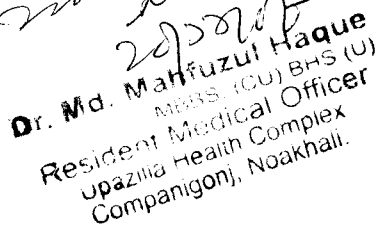 Dr. Md. Mahfuzul Haque
MBBS. (CU) BHS (U)
Resident Medical Officer
Upazilla Health Complex
Companigonj, Noakhali.